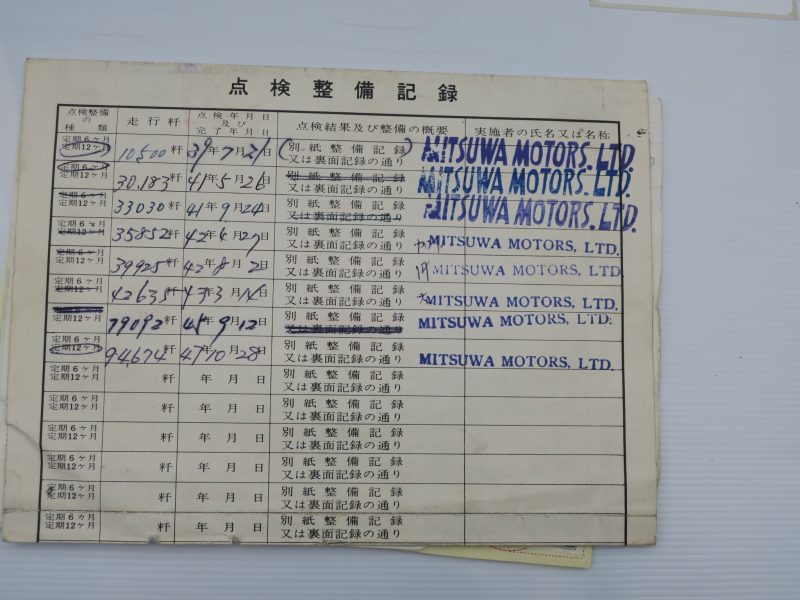 点検整備記録
点検整備の種類 走行粁 点検年月日及び完了年月日 点検結果及び整備の概要 実施者の氏名又は名称
定期6ヶ月 定期12ヶ月 10500粁 39年7月21日 (別紙整備記録) 又は裏面記録の通り MITSUWA MOTORS. LTD.
定期6ヶ月 定期12ヶ月 30.183粁 41年5月26日 別紙整備記録 又は裏面記録の通り MITSUWA MOTORS. LTD.
定期6ヶ月 定期12ヶ月 33030粁 41年9月24日 別紙整備記録 又は裏面記録の通り MITSUWA MOTORS. LTD.
定期6ヶ月 定期12ヶ月 35852粁 42年4月27日 別紙整備記録 又は裏面記録の通り MITSUWA MOTORS, LTD.
定期6ヶ月 定期12ヶ月 39925粁 42年8月2日 別紙整備記録 又は裏面記録の通り MITSUWA MOTORS, LTD.
定期6ヶ月 定期12ヶ月 42635粁 43年3月14日 別紙整備記録 又は裏面記録の通り MITSUWA MOTORS, LTD.
定期12ヶ月 79092粁 45年9月12日 別紙整備記録 又は裏面記録の通り MITSUWA MOTORS, LTD.
定期6ヶ月 定期12ヶ月 94674粁 47年10月28日 別紙整備記録 又は裏面記録の通り MITSUWA MOTORS, LTD.
定期6ヶ月 定期12ヶ月 粁 年月日 別紙整備記録 又は裏面記録の通り
定期6ヶ月 定期12ヶ月 粁 年月日 別紙整備記録 又は裏面記録の通り
定期6ヶ月 定期12ヶ月 粁 年月日 別紙整備記録 又は裏面記録の通り
定期6ヶ月 定期12ヶ月 粁 年月日 別紙整備記録 又は裏面記録の通り
定期6ヶ月 定期12ヶ月 粁 年月日 別紙整備記録 又は裏面記録の通り
定期6カ月 定期12ヶ月 粁 年月日 別紙整備記録 又は裏面記録の通り